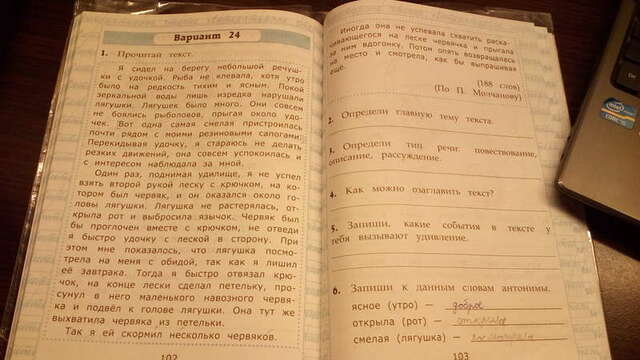 Вариант 24
1. Прочитай текст.
Я сидел на берегу небольшой речуш-
ки с удочкой. Рыба не клевала, хотя утро
было на редкость тихим и ясным. Покой
зеркальной воды лишь изредка нарушали
лягушки. Лягушек было много. Они совсем
не боялись рыболовов, прыгая около удо-
чек. Вот одна самая смелая пристроилась
почти рядом с моими резиновыми сапогами.
Перекидывая удочку, я стараюсь не делать
резких движений, она совсем успокоилась и
с интересом наблюдала за мной.
Один раз, поднимая удилище, я не успел
взять второй рукой леску с крючком, на ко-
тором был червяк, и он оказался около го-
ловы лягушки. Лягушка не растерялась, от-
крыла рот и выбросила язычок. Червяк был
бы проглочен вместе с крючком, не отведи
я быстро удочку с леской в сторону. При
этом мне показалось, что лягушка посмо-
трела на меня с обидой, так как я лишил
её завтрака. Тогда я быстро отвязал крю-
чок, на конце лески сделал петельку, про-
сунул в него маленького навозного червя-
ка и подвёл к голове лягушки. Она тут же
выхватила червяка из петельки.
Так я ей скормил несколько червяков.
102
Иногда она не успевала схватить раска-
чивающегося на леске червячка и прыгала
за ним вдогонку. Потом опять возвращалась
на место и смотрела, как бы выпрашивая
ещё.
(188 слов)
(По П. Молчанову)
2. Определи главную тему текста.
3. Определи тип речи: повествование,
описание, рассуждение.
4. Как можно озаглавить текст?
5. Запиши, какие события в тексте у
тебя вызывают удивление.
6. Запиши к данным словам антонимы.
ясное (утро) — доброе
открыла (рот) —
смелая (лягушка) —
103
intel